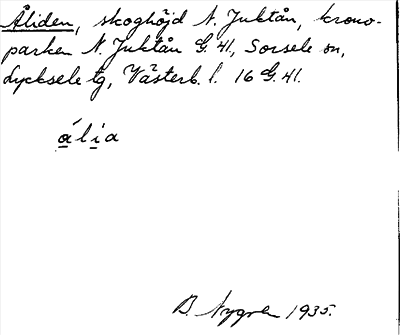 Åliden, skoghöjd N. Juktån, krono-
parken N. Juktån G. 41, Sorsele sn,
Lycksele tg, Västerb. l. 16 G. 41.
ália
B. Nygren 1935.